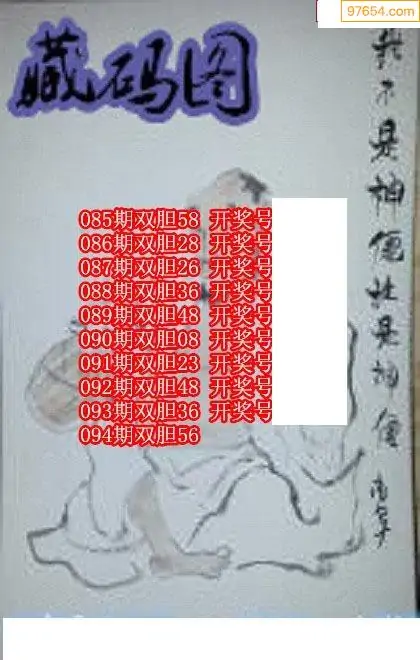 97654.com
藏码图
085期双胆58 开奖号
086期双胆28 开奖号
087期双胆26 开奖号
088期双胆36 开奖号
089期双胆48 开奖号
090期双胆08 开奖号
091期双胆23 开奖号
092期双胆48 开奖号
093期双胆36 开奖号
094期双胆56
不是神
是神